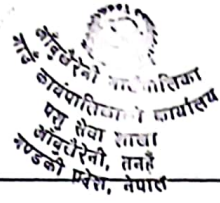 आँबुखैरेनी गाउँपालिका
गाउँ कार्यपालिकाको कार्यालय
पशु सेवा शाखा
आँबुखैरेनी, तनहुँ
गण्डकी प्रदेश, नेपाल